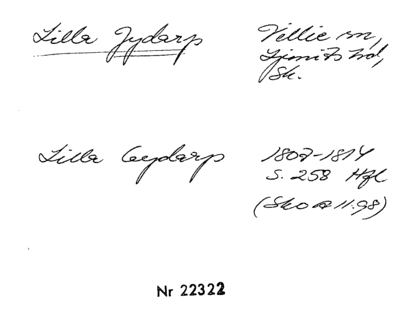 Lilla Jydarp Vellie sn,
Ljunits hd,
Sk.
Lilla Gydarp 1807-1814
S. 258 Hfl
(Sko A 11:98)
Nr 22322